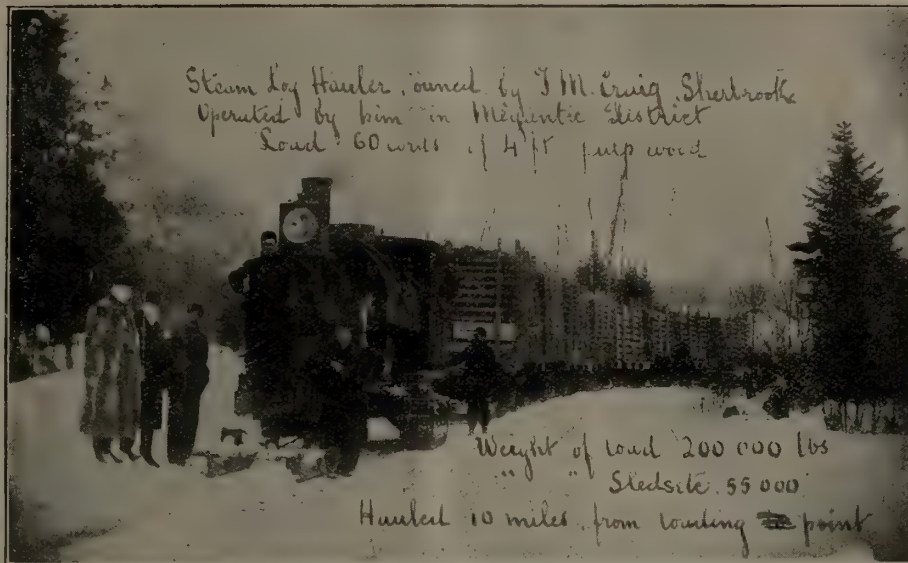 Steam Log Hauler, owned by T. M. Craig, Sherbrooke
Operated by him in Megantic District
Load 60 cords of 4 ft pulp wood
Weight of load 200 000 lbs
" " Sledsite. 55 000
Hauled 10 miles from loading point